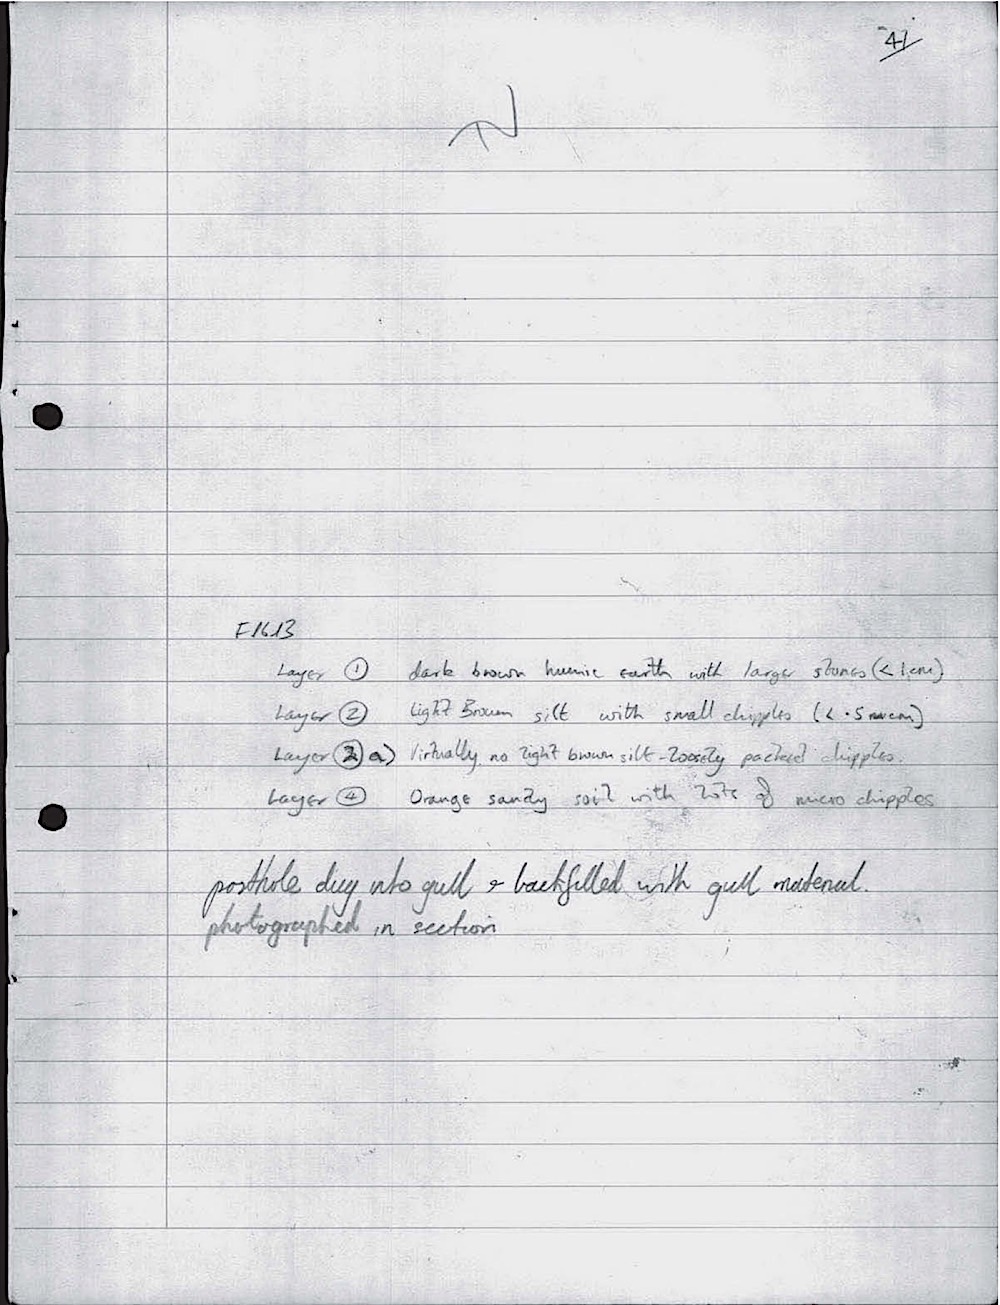 41
F1613
Layer ① dark brown humic earth with larger stones (< 1cm)
Layer ② Light Brown silt with small chipples (< .5
Layer ③ a) Virtually no light brown silt - loosely packed chipples.
Layer ④ Orange sandy soil with lots of micro chipples
posthole dug into gull & backfilled with gull material.
photographed in section